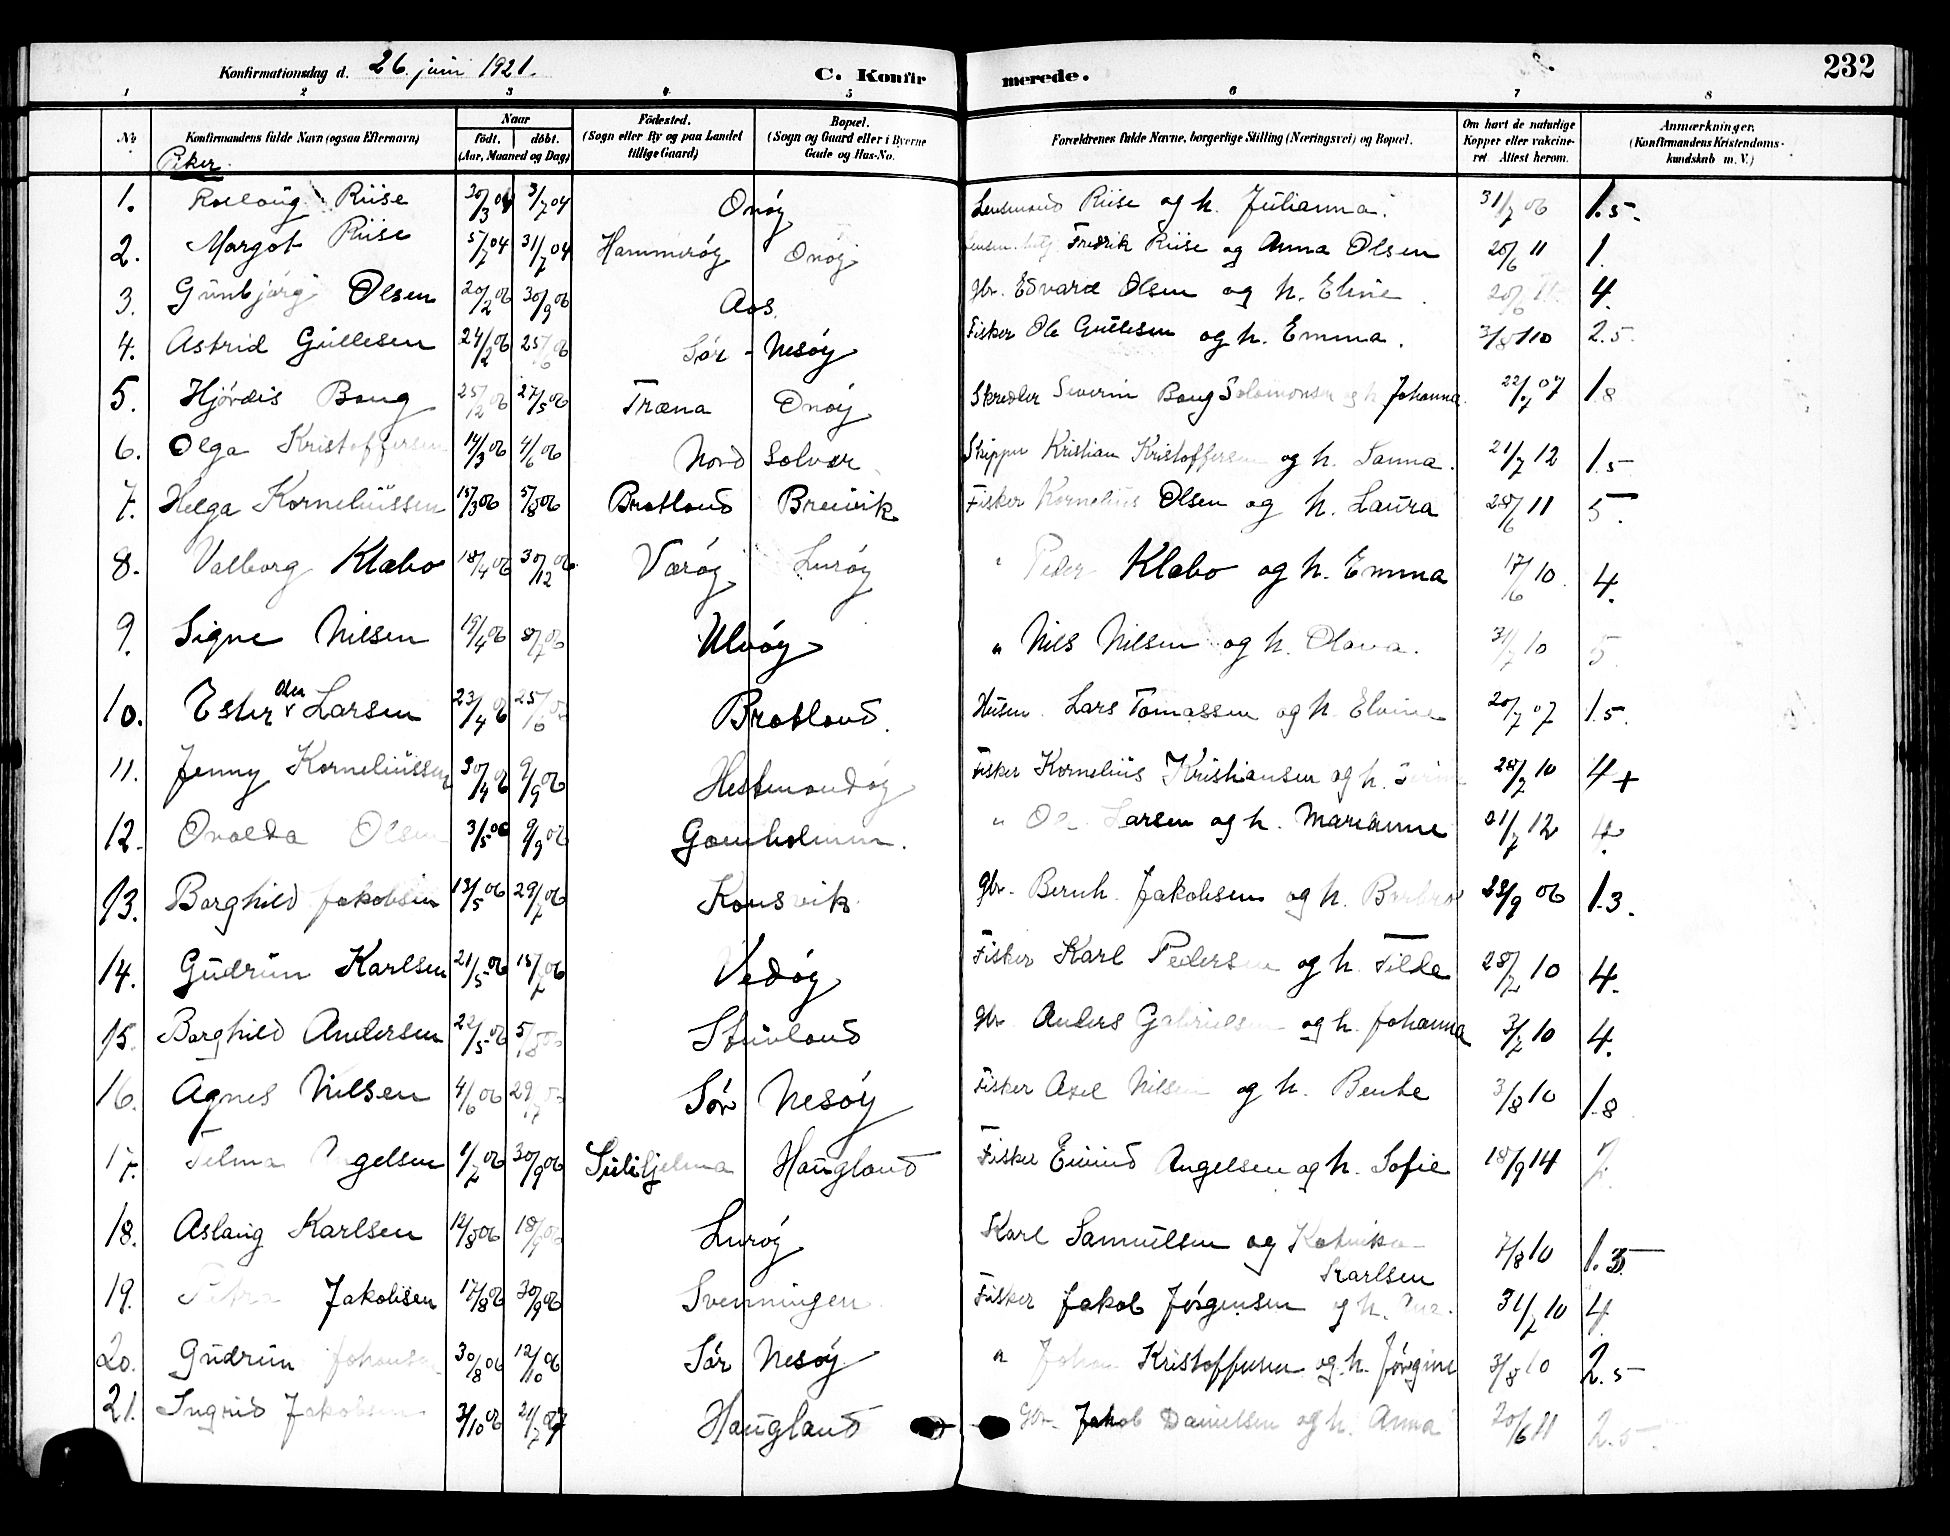 Konfirmationsdag d. 26. juni 1921. C. Konfirmerede. 232
1 2 3 4 5 6 7 8
No. Konfirmandens fulde Navn (ogsaa Efternavn) Naar født. døbt. (Aar, Maaned og Dag) Fødested. (Sogn eller By og paa Landet tillige Gaard) Bopæl. (Sogn og Gaard eller i Byerne Gade og Hus-No. Forældrenes fulde Navne, borgerlige Stilling (Næringsvei) og Bopæl. Om havt de naturlige Kopper eller vakcineret Attest herom. Anmærkninger. (Konfirmandens Kristendomskundskab m. V.)
Piker.
1. Riise 20/3 04 3/7 04 Onøy Lensmand Riise og h. Julianna. 31/7 06 1.5.
2. Margot Riise 5/7 04 31/7 04 Hammerøy Onøy Fredrik Riise og Anna Olsen 20/6 11 1.
3. Gunbjørg Olsen 20/2 06 30/9 06 Aos. gbr. Edvard Olsen og h. Eline. 20/6 11 4.
4. Astrid Gullesen 24/2 06 25/6 06 Sør-Nesøy Fisker Ole Gullesen og h. Emma. 3/8 10 2.5.
5. Hjørdis Bang 25/12 06 27/5 06 Træna Onøy Skredder Severin Bang Salamonsen og h Johanna. 22/7 07 1.8
6. Olga Kristoffersen 14/3 06 4/6 06 Nord Solvær Skipper Kristian Kristoffersen og h. Sanna. 21/7 12 1.5
7. Helga Korneliussen 15/3 06 5/8 06 Bratland Breivik Fisker Kornelius Olsen og h. Laura 28/6 11 5.
8. Valborg Klæbo 18/4 06 30/12 06. Værøy Lurøy " Peder Klæbo og h. Emma 17/6 10. 4.
9. Signe Nilsen 19/4 06 8/7 06 Ulvøy " Nils Nilsen og h. Olava. 31/7 10 5.
10. Ester Larsen 23/4 06 25/ Bratland. Husm. Lars Tomassen og h. Elvine 20/7 07 1.5.
11. Jenny Korneliussen 30/4 06 9/9 06 Hestmandøy Fisker Kornelius Kristiansen og h. 28/7 10 4+
12. Ovalda Olsen 3/5 06 9/9 06 Gamholmen. " Ole Larsen og h. Marianne 21/7 12 4.
13. Borghild Jakobsen 13/5 06 29/7 06 Konsvik gbr. Bernh. Jakobsen og h. Barbro 23/9 06 1.3.
14. Gudrun Karlsen 21/5 06 15/7 06 Vedøy Fisker Karl Pedersen og h. Tilda 28/7 10 4.
15. Borghild Andersen 22/5 06 5/8 06 Stuvland gbr. Anders Gabrielsen og h. Johanna 3/7 10 4.
16. Agnes Nilsen 4/6 06 29/7 Sør Nesøy Fisker Axel Nilsen og h. Bente 3/8 10 1.8
17. Telma Angelsen 1/7 06 30/9 06 Sulitjelma Haugland Fisker Eivind Angelsen og h. Sofie 18/9 14 2.
18. Aslaug Karlsen 12/8 06 18/9 06 Lurøy Karl Samuelsen og Karlsen 7/8 10 1.3
19. Petra Jakobsen 17/8 06 30/9 06 Svenningen Fisker Jakob Jørgensen og h. 31/7 10 4.
20. Gudrun Johansen 30/8 06 12/10 06 Sør Nesøy " Johan Kristoffersen og h. Jørgine 3/8 10 2.5
21. Ingrid Jakobsen 3/10 06 21/7 07 Haugland Gbr. Jakob Danielsen og h. Anna 20/6 11 2.5.